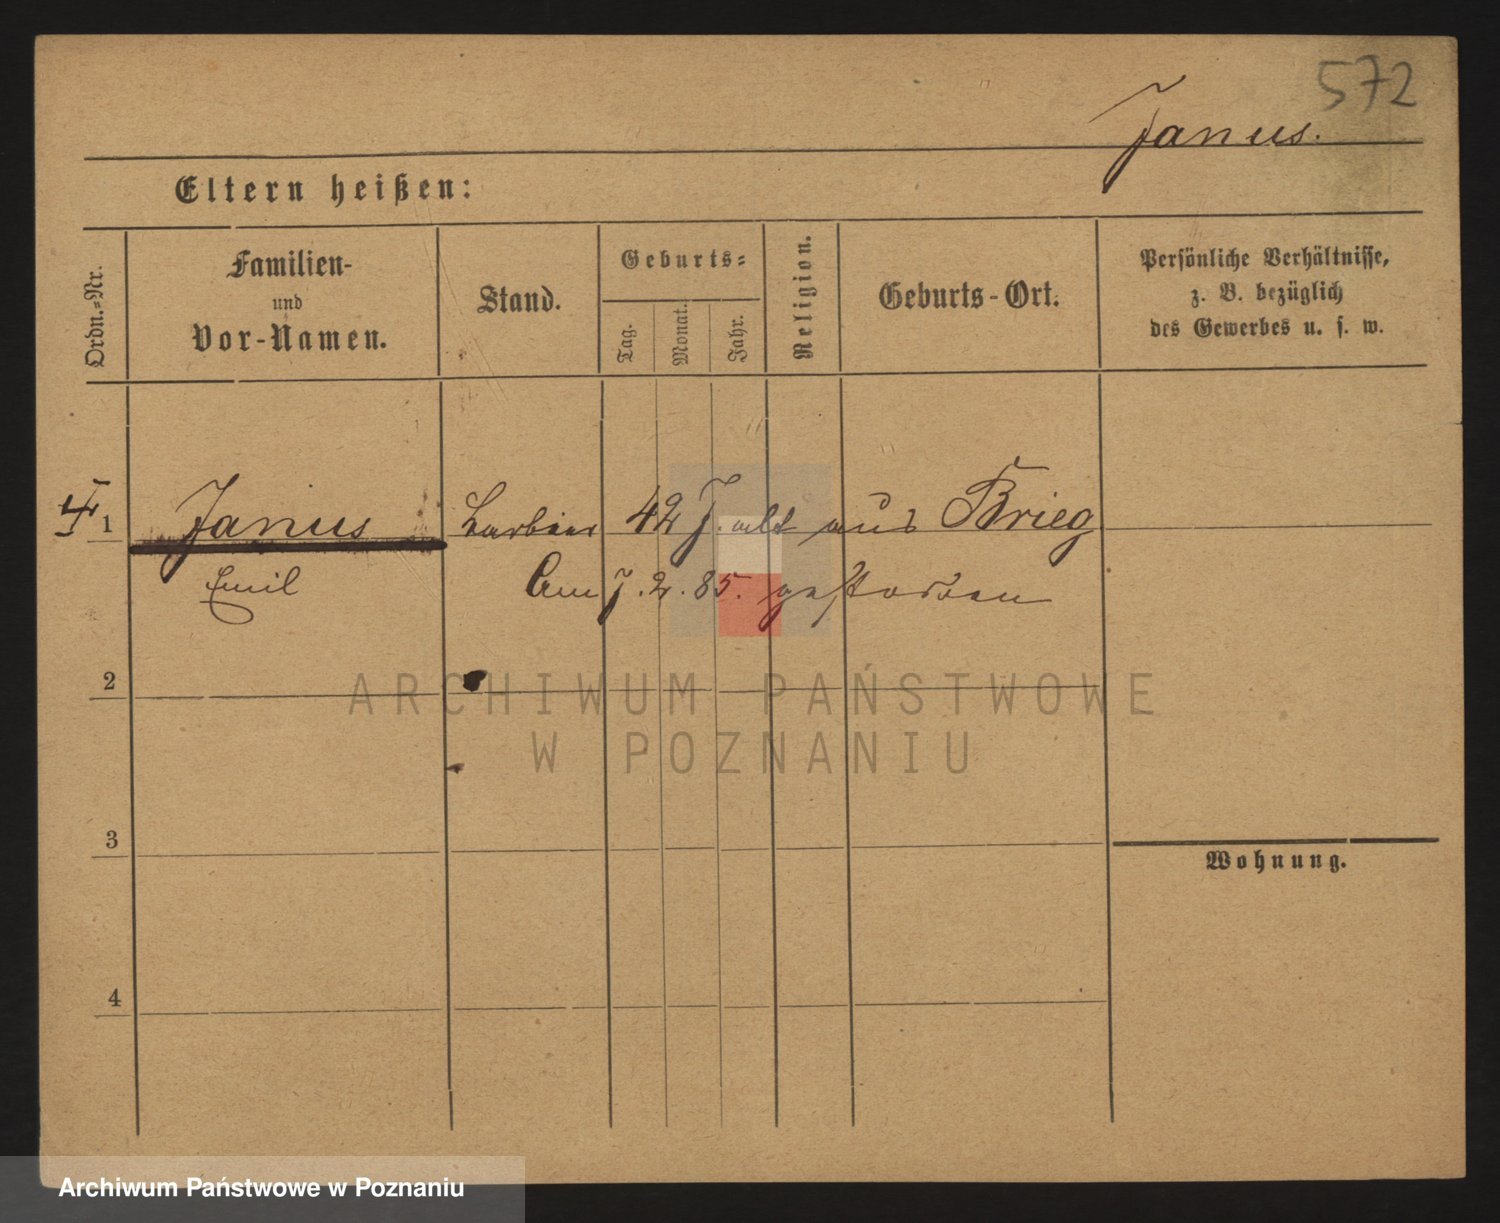 572
Janus.
Eltern heißen:
Ordn.-Nr.
Familien-
und
Vor-Namen.
Stand.
Geburts-
Tag.
Monat.
Jahr.
Religion.
Geburts-Ort.
Persönliche Verhältnisse,
z. B. bezüglich
des Gewerbes u. s. w.
1 Janus Barbier 42 J. alt aus Brieg
Emil Am 7.2.85. gestorben
2
ARCHIWUM PAŃSTWOWE
W POZNANIU
3
Wohnung.
4
Archiwum Państwowe w Poznaniu